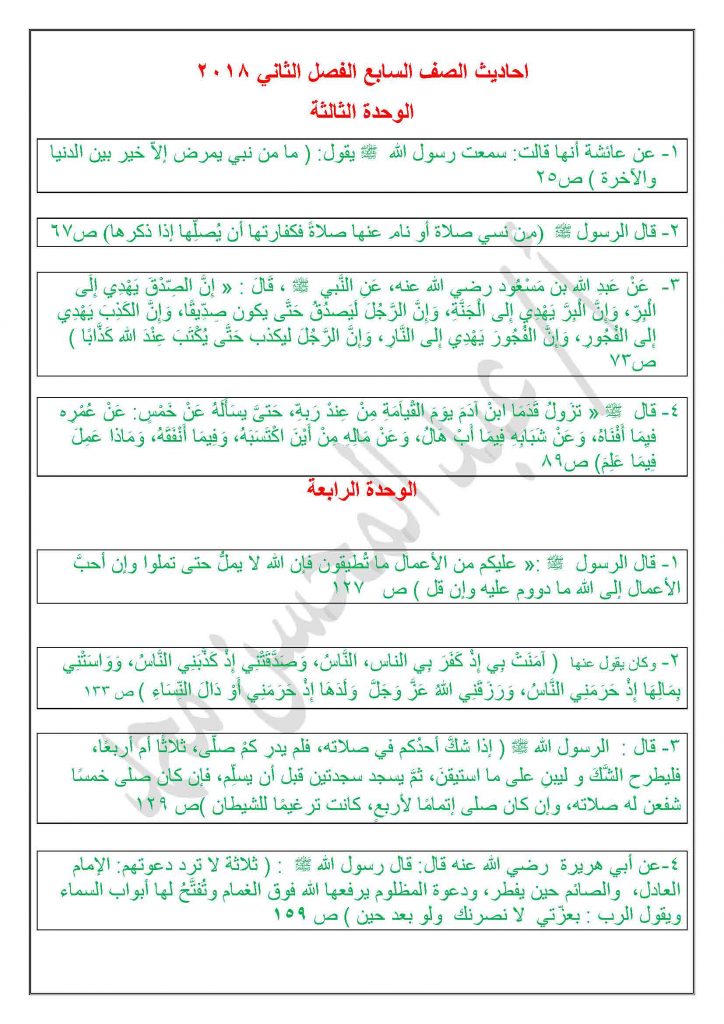 احاديث الصف السابع الفصل الثاني ٢٠١٨
الوحدة الثالثة
١- عن عائشة أنها قالت: سمعت رسول الله ﷺ يقول: ( ما من نبي يمرض إلاّ خير بين الدنيا
والآخرة ) ص٢٥
٢- قال الرسول ﷺ (من نسي صلاة أو نام عنها صلاةً فكفارتها أن يُصلِّها إذا ذكرها) ص٦٧
٣- عَنْ عَبدِ اللهِ بن مَسْعُود رضي الله عنه، عَنِ النَّبي ﷺ ، قَالَ : « إِنَّ الصِّدْقَ يَهْدِي إِلَى
الْبِرِّ، وَإِنَّ الْبِرَّ يَهْدِي إِلى الْجَنَّةِ، وَإِنَّ الرَّجُلَ لَيَصدُقُ حَتَّى يكون صِدِّيقًا، وَإِنَّ الكَذِبَ يَهْدِي
إلى الفُجُورِ، وَإِنَّ الفُجُورَ يَهْدِي إِلى النَّارِ، وَإِنَّ الرَّجُلَ ليكذب حَتَّى يُكْتَبَ عِنْدَ الله كَذَّابًا )
ص٧٣
٤- قال ﷺ « تزَولُ قَدَمَا ابْنَ آدَمَ يومَ القْياَمَةِ مِنْ عِندْ رَبةِ، حَتىَّ يسأَلُهُ عَنْ خَمْسٍ: عَنْ عُمْرِه
فِيمَا أَفْنَاهُ، وَعَنْ شَبَابِهِ فِيمَا أَبْ هَالُ، وَعَنْ مَالِهِ مِنْ أَيْنَ اكْتَسَبَهُ، وَفِيمَا أَنْفَقَهُ، وَمَاذا عَمِلَ
فِيمَا عَلِمَ) ص٨٩
الوحدة الرابعة
١- قال الرسول ﷺ :« عليكم من الأعمال ما تُطيقون فإن الله لا يملُّ حتى تملوا وإن أحبَّ
الأعمال إلى الله ما دووم عليه وإن قل ) ص ١٢٧
٢- وكان يقول عنها ( آمَنَتْ بِي إِذْ كَفَرَ بِي الناس، النَّاسُ، وَصَدَّقَتْنِي إِذْ كَذَّبَنِي النَّاسُ، وَوَاسَتْنِي
بِمَالِهَا إِذْ حَرَمَنِي النَّاسُ، وَرَزَقَنِي اللهُ عَزَّ وَجَلَّ وَلَدَهَا إِذْ حَرَمَنِي أَوْ دَالَ النِّسَاءِ ) ص ١٣٣
٣- قال : الرسول الله ﷺ ( إذا شكَّ أحدُكم في صلاته، فلم يدرِ كمْ صلّى، ثلاثًا أم أربعًا،
فليطرح الشَّكَ و ليبنِ على ما استيقنَ، ثمَّ يسجد سجدتين قبل أن يسلِّم، فإن كان صلى خمسًا
شفعن له صلاته، وإن كان صلى إتمامًا لأربعٍ، كانت ترغيمًا للشيطان )ص ١٢٩
٤-عن أبي هريرة رضي الله عنه قال: قال رسول الله ﷺ : ( ثلاثة لا ترد دعوتهم: الإمام
العادل، والصائم حين يفطر، ودعوة المظلوم يرفعها الله فوق الغمام وتُفتَحُ لها أبواب السماء
ويقول الرب : بعزّتي لا نصرنك ولو بعد حين ) ص ١٥٩
أ/ عبد المحسن محمد